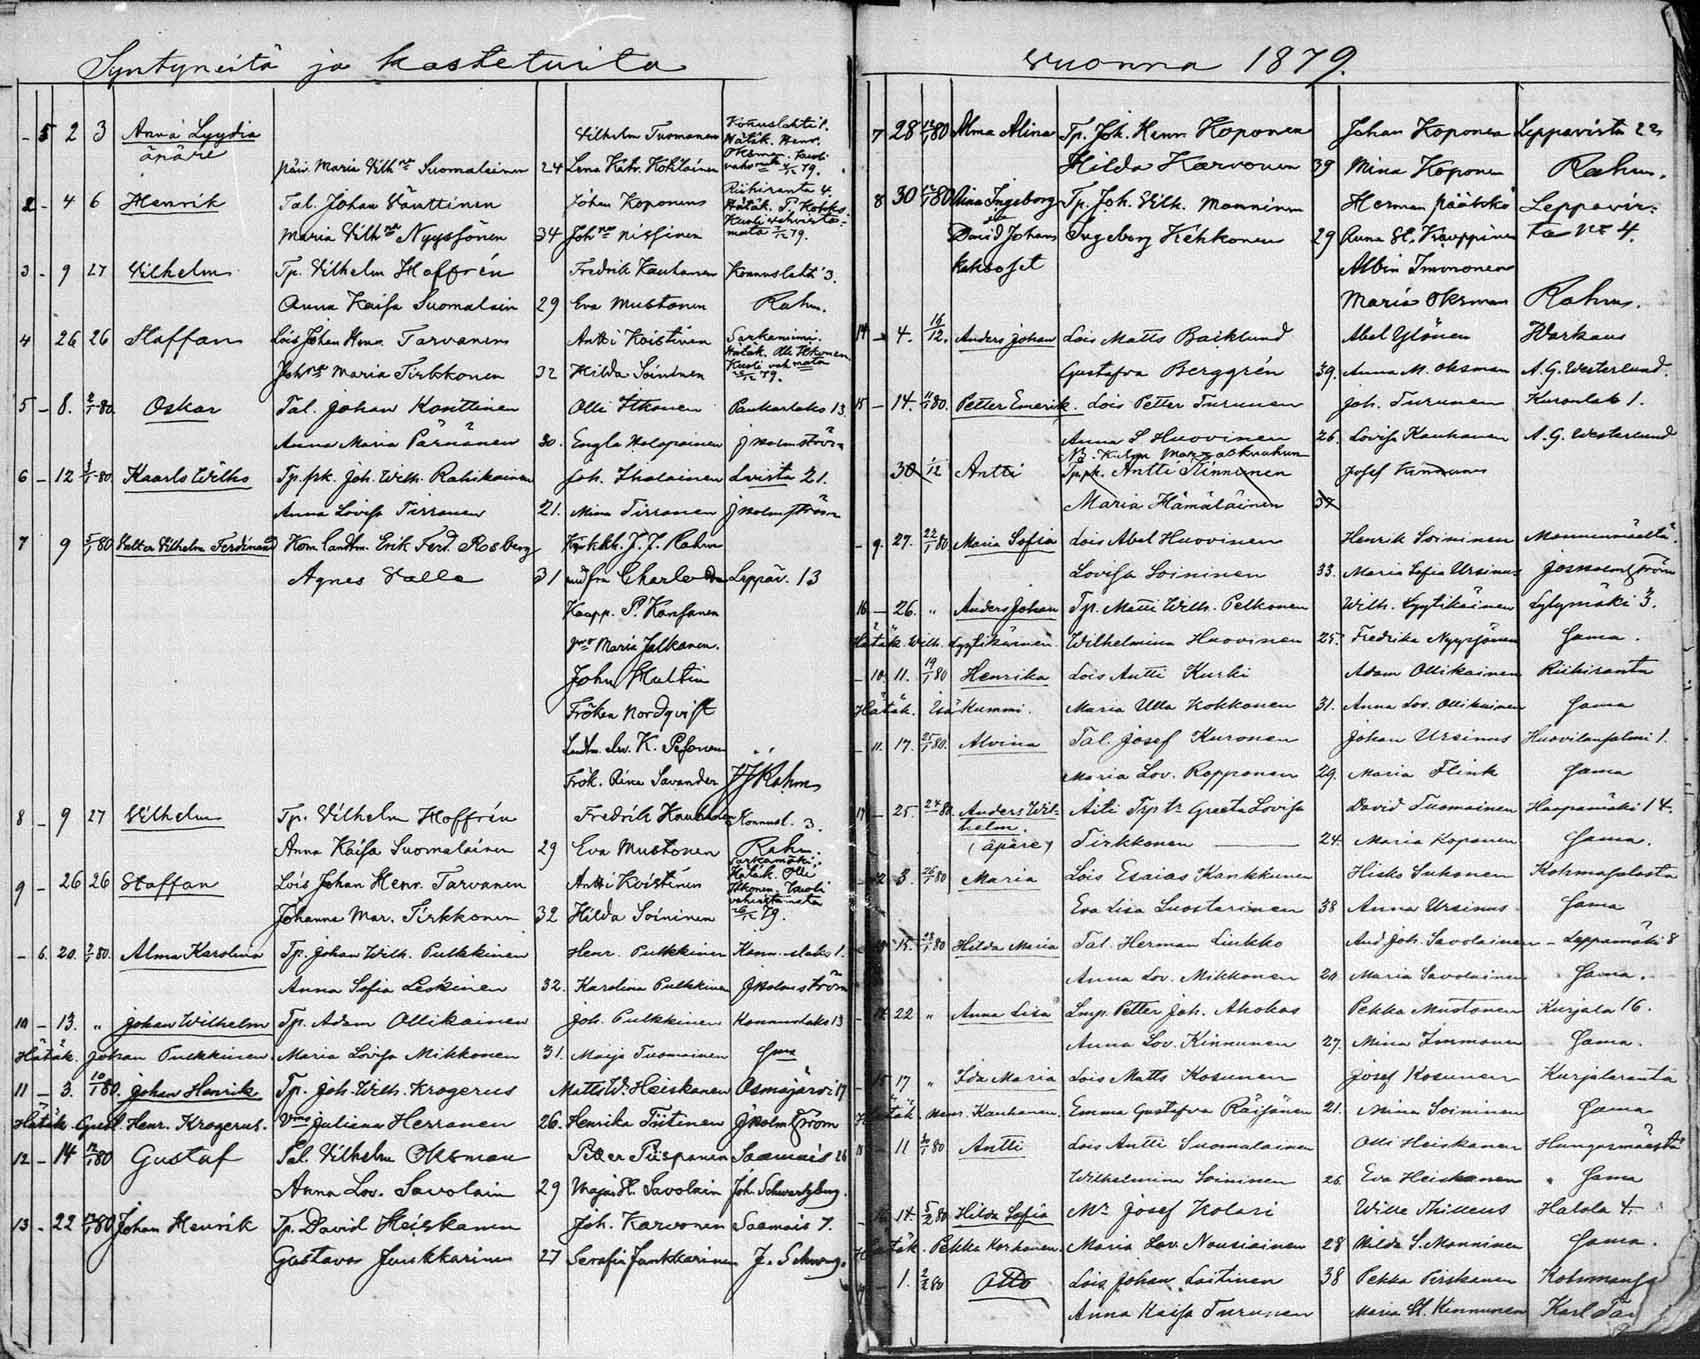 Syntyneitä ja kastetuita
- 5 2 3 Anna Lyydia Vilhelm Tuomanen
äpäre
Maria Vilh Suomalainen 24 Lena Katr.
2 - 4 6 Henrik Tal. Johan Vänttinen Johan Koponen Riihiranta 4.
Maria Vilh Nyyssönen 34 Joh Nissinen
3 - 9 27 Vilhelm Tp. Vilhelm Hoffrén Fredrik Kauhanen Konnuslahti 3.
Anna Kaisa Suomalain 29 Eva Mustonen Rahm.
4 26 26 Staffan Lois Johan Henr. Tarvanen Antti Koistinen Sarkamäki.
Maria Tirkkonen 32 Hilda Soininen
5 - 8. 2/1 80. Oskar Tal. Johan Konttinen Olli Itkonen Paukarlaks 13.
Anna Maria Pärnänen 30. Engla Holopainen J Holmström
6 - 12 1/1 80 Kaarlo Wilho Tp. pk. Joh. Wilh. Rahikainen Joh. Ihalainen Lvirta 21.
Anna Lovisa Tirronen 21. Mina Tirronen J Holmström
7 9 5/1 80 Valter Vilhelm Ferdinand Kom. landtm. Erik Ferd. Rosberg J. J. Rahm
Agnes Valle 31 Charlotta Leppäv. 13
Kaupp. P. Kansanen
Maria Jalkanen.
John Hultin
Fröken Nordqvist
K. Pesonen
Frök. Aina Savander JJ Rahm
8 - 9 27 Vilhelm Tp. Vilhelm Hoffrén Fredrik Kauhanen Konnusl. 3.
Anna Kaisa Suomalainen 29 Eva Mustonen Rahm.
9 - 26 26 Staffan Lois Johan Henr. Tarvanen Antti Koistinen Sarkamäki.
Johanna Mar. Tirkkonen 32 Hilda Soininen
- 6. 20. 2/1 80. Alma Karolina Tp. Johan Wilh. Pulkkinen Henr. Pulkkinen Konnuslaks 1.
Anna Sofia Leskinen 32. Karolina Pulkkinen J Holmström
10 - 13. " Johan Wilhelm Tp. Adam Ollikainen Joh. Pulkkinen Konnuslaks 13
Hätäk. Johan Pulkkinen Maria Lovisa Mikkonen 31. Maija Tuomainen Sama
11 - 3. 10/1 80. Johan Henrik Tp. Joh. Wilh. Krogerus Matts W. Heiskanen Osmajärvi 17
Hätäk. Gust. Henr. Krogerus. Juliana Herranen 26. Henrika Tiitinen J Holmström
12 - 14 12/1 80 Gustaf Tal. Vilhelm Oksman Petter Piispanen Saamais 26
Anna Lov. Savolain 29 Maja St. Savolain Joh. Schwartzberg.
13 - 22 80 Johan Henrik Tp. David Heiskanen Joh. Karvonen Saamais 7.
Gustava Junkkarinen 27 Serafia Junkkarinen J. Schwrg.
vuonna 1879.
7 28 80 Alma Alina Tp. Joh. Henr. Koponen Johan Koponen Leppävirta 22
Hilda Karvonen 39 Mina Koponen Rahm.
8 30 80 Aina Ingeborg Tp. Joh. Vilh. Manninen Herman Pääkkö Leppävir-
David Johans Ingeborg Kehkonen 29 Anna St. Kauppinen ta No 4.
kaksoset Albin Immonen
Maria Oksman Rahm.
14 - 4. 16/12. Anders Johan Lois Matts Backlund Abel Ylönen Warkaus
Gustafva Berggrén 39. Anna M. Oksman A. G. Westerlund.
15 - 14. 11/1 80. Petter Emerik. Lois Petter Turunen Joh. Turunen Kuronlah 1.
Anna S Huovinen 26. Lovisa Kauhanen A. G. Westerlund
30 1/12 Antti Tp. pk. Antti Tinnunen Josef
Maria Hämäläinen 37
- 9. 27. 22/1 80 Maria Sofia Lois Abel Huovinen Henrik Soininen Monninmäeltä
Lovisa Soininen 33. Maria Sofia Ursinus Jos Holmström
16 - 26. " Anders Johan Tp. Matti Wilh. Pelkonen Wilh. Lyytikäinen Lylymäki 3.
Hätäk. Wilh. Lyytikäinen. Wilhelmina Huovinen 25. Fredrika Nyyssönen Sama.
- 10 11. 19/1 80 Henrika Lois Antti Kurki Adam Ollikainen Riihiranta
Hätäk. Isä Kummi. Maria Ulla Kokkonen 31. Anna Lov. Ollikainen Sama
- 11. 17. 25/1 80. Alvina Tal. Josef Kuronen Johan Ursinus Huovilansalmi 1.
Maria Lov. Ropponen 29. Maria Flink Sama
17 - 25. 24 80. Anders Wil- Äiti Greeta Lovisa David Tuomainen Haapamäki 14.
helm.
(äpäre) Tirkkonen 24. Maria Koponen Sama.
- 12 3. 26/1 80 Maria Lois Esaias Kankkunen Hisko Suhonen Kohmasalosta
Eva Lisa Luostarinen 38 Anna Ursinus Sama
15. 23/1 80 Hilda Maria Tal. Herman Liukko And. Joh. Savolainen - Leppämäki 8
Anna Lov. Mikkonen 20. Maria Savolainen Sama.
22 " Anna Lisa Petter Joh. Ahokas Pekka Mustonen Kurjala 16.
Anna Lov. Kinnunen 27. Mina Immonen Sama.
15 17 " Ida Maria Lois Matts Kosunen Josef Kosunen Kurjalaranta
Hätäk. Henr. Kauhanen. Emma Gustafva Räisänen 21. Mina Soininen Sama
11 80 Antti Lois Antti Suomalainen Olli Heiskanen
Wilhelmina Soininen 26. Eva Heiskanen " Sama
14. 5/2 80 Hilda Sofia Josef Kolari Wille Thilleus Halola 4.
Hätäk. Pekka Korhonen. Maria Lov. Nousiainen 28 Hilda S. Manninen Sama.
- 1. 2/2 80 Otto Lois Johan Laitinen 38 Pekka Pirskanen
Anna Kaisa Turunen Maria St. Kinnunen Karl